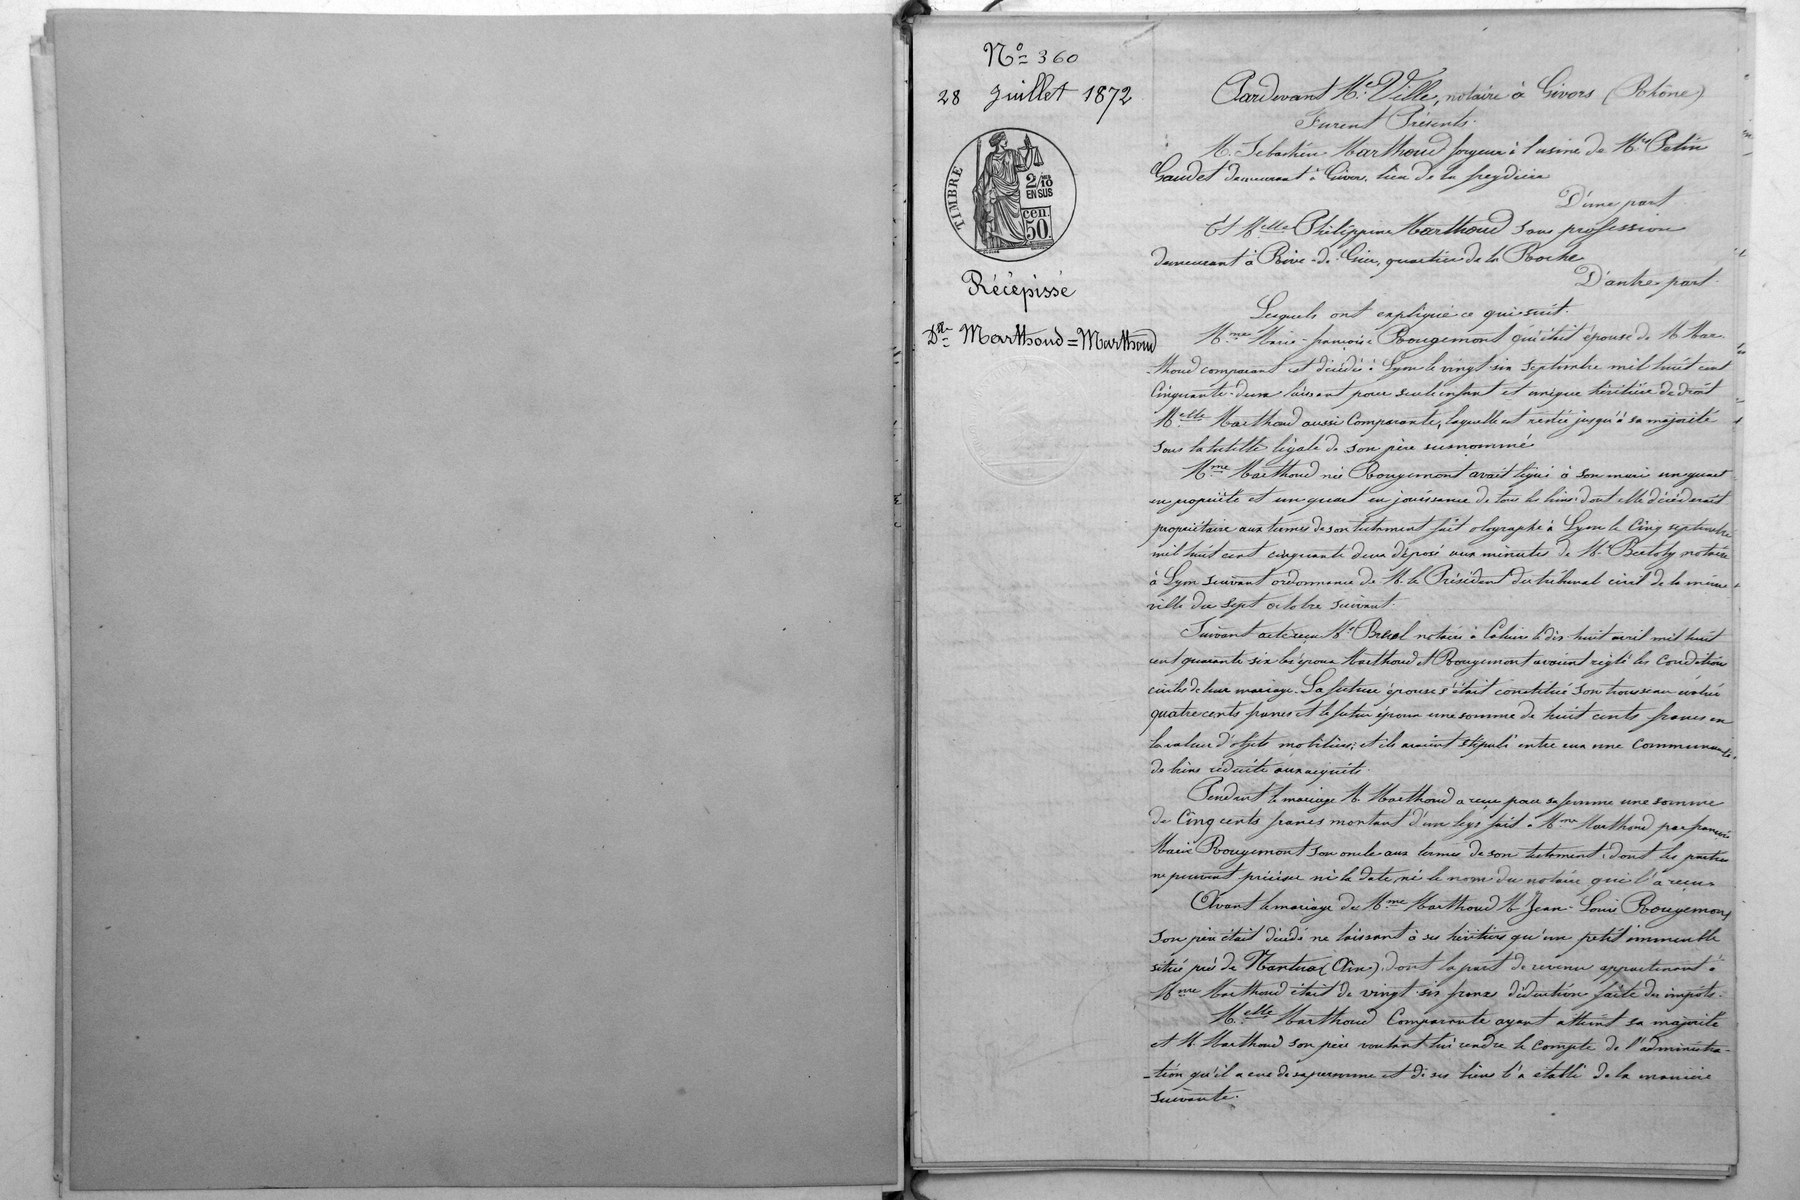 N° 360
28 Juillet 1872
TIMBRE
2/10
EN SUS
cen.
50.
Récépissé
Dlle Marthoud = Marthoud
Pardevant Me Ville, notaire à Givors (Rhône)
Furent Présents.
M. Sébastien Marthoud forgeur à l'usine de MM. Petin
Gaudet demeurant à Givors, lieu de la freydière
D'une part
Et Melle Philippine Marthoud sans profession
demeurant à Rive-de-Gier, quartier de la Roche
D'autre part.
Lesquels ont expliqué ce qui suit.
Mme Marie-françoise Rougemont qui était épouse de M. Mar-
-thoud comparant est décédée à Lyon le vingt six septembre mil huit cent
Cinquante-deux laissant pour seule enfant et unique héritière de droit
Melle Marthoud aussi Comparante, laquelle est restée jusqu'à sa majorité
sous la tutelle légale de son père susnommé
Mme Marthoud née Rougemont avait légué à son mari un quart
en propriété et un quart en jouissance de tous les biens dont elle décéderait
propriétaire aux termes de son testament fait olographe à Lyon le Cinq septembre
mil huit cent cinquante deux déposé aux minutes de Me Bertoly notaire
à Lyon suivant ordonnance de M. le Président du tribunal civil de la même
ville du sept octobre suivant.
Suivant acte reçu Me notaire à Caluire le dix-huit avril mil huit
cent quarante six les époux Marthoud et Rougemont avaient réglé les conditions
civiles de leur mariage. La future épouse s'était constitué son trousseau évalué
quatre cents francs et le futur époux une somme de huit cents francs en
la valeur d'objets mobiliers; et ils avaient stipulé entre eux une Communauté
de biens réduite aux acquêts.
Pendant le mariage M. Marthoud a reçu pour sa femme une somme
de Cinq cents francs montant d'un legs fait à Mme Marthoud par françois
Marie Rougemont son oncle aux termes de son testament, dont les parties
ne peuvent préciser ni la date, ni le nom du notaire qui l'a reçu
Avant le mariage de Mme Marthoud M. Jean-Louis Rougemont
son père était décédé ne laissant à ses héritiers qu'un petit immeuble
situé près de Nantua (Ain) dont la part de revenu appartenant à
Mme Marthoud était de vingt-six francs déduction faite des impôts.
Melle Marthoud Comparante ayant atteint sa majorité
et M. Marthoud son père voulant lui rendre le compte de l'administra-
-tion qu'il a eue de sa personne et de ses biens l'a établi de la manière
suivante.